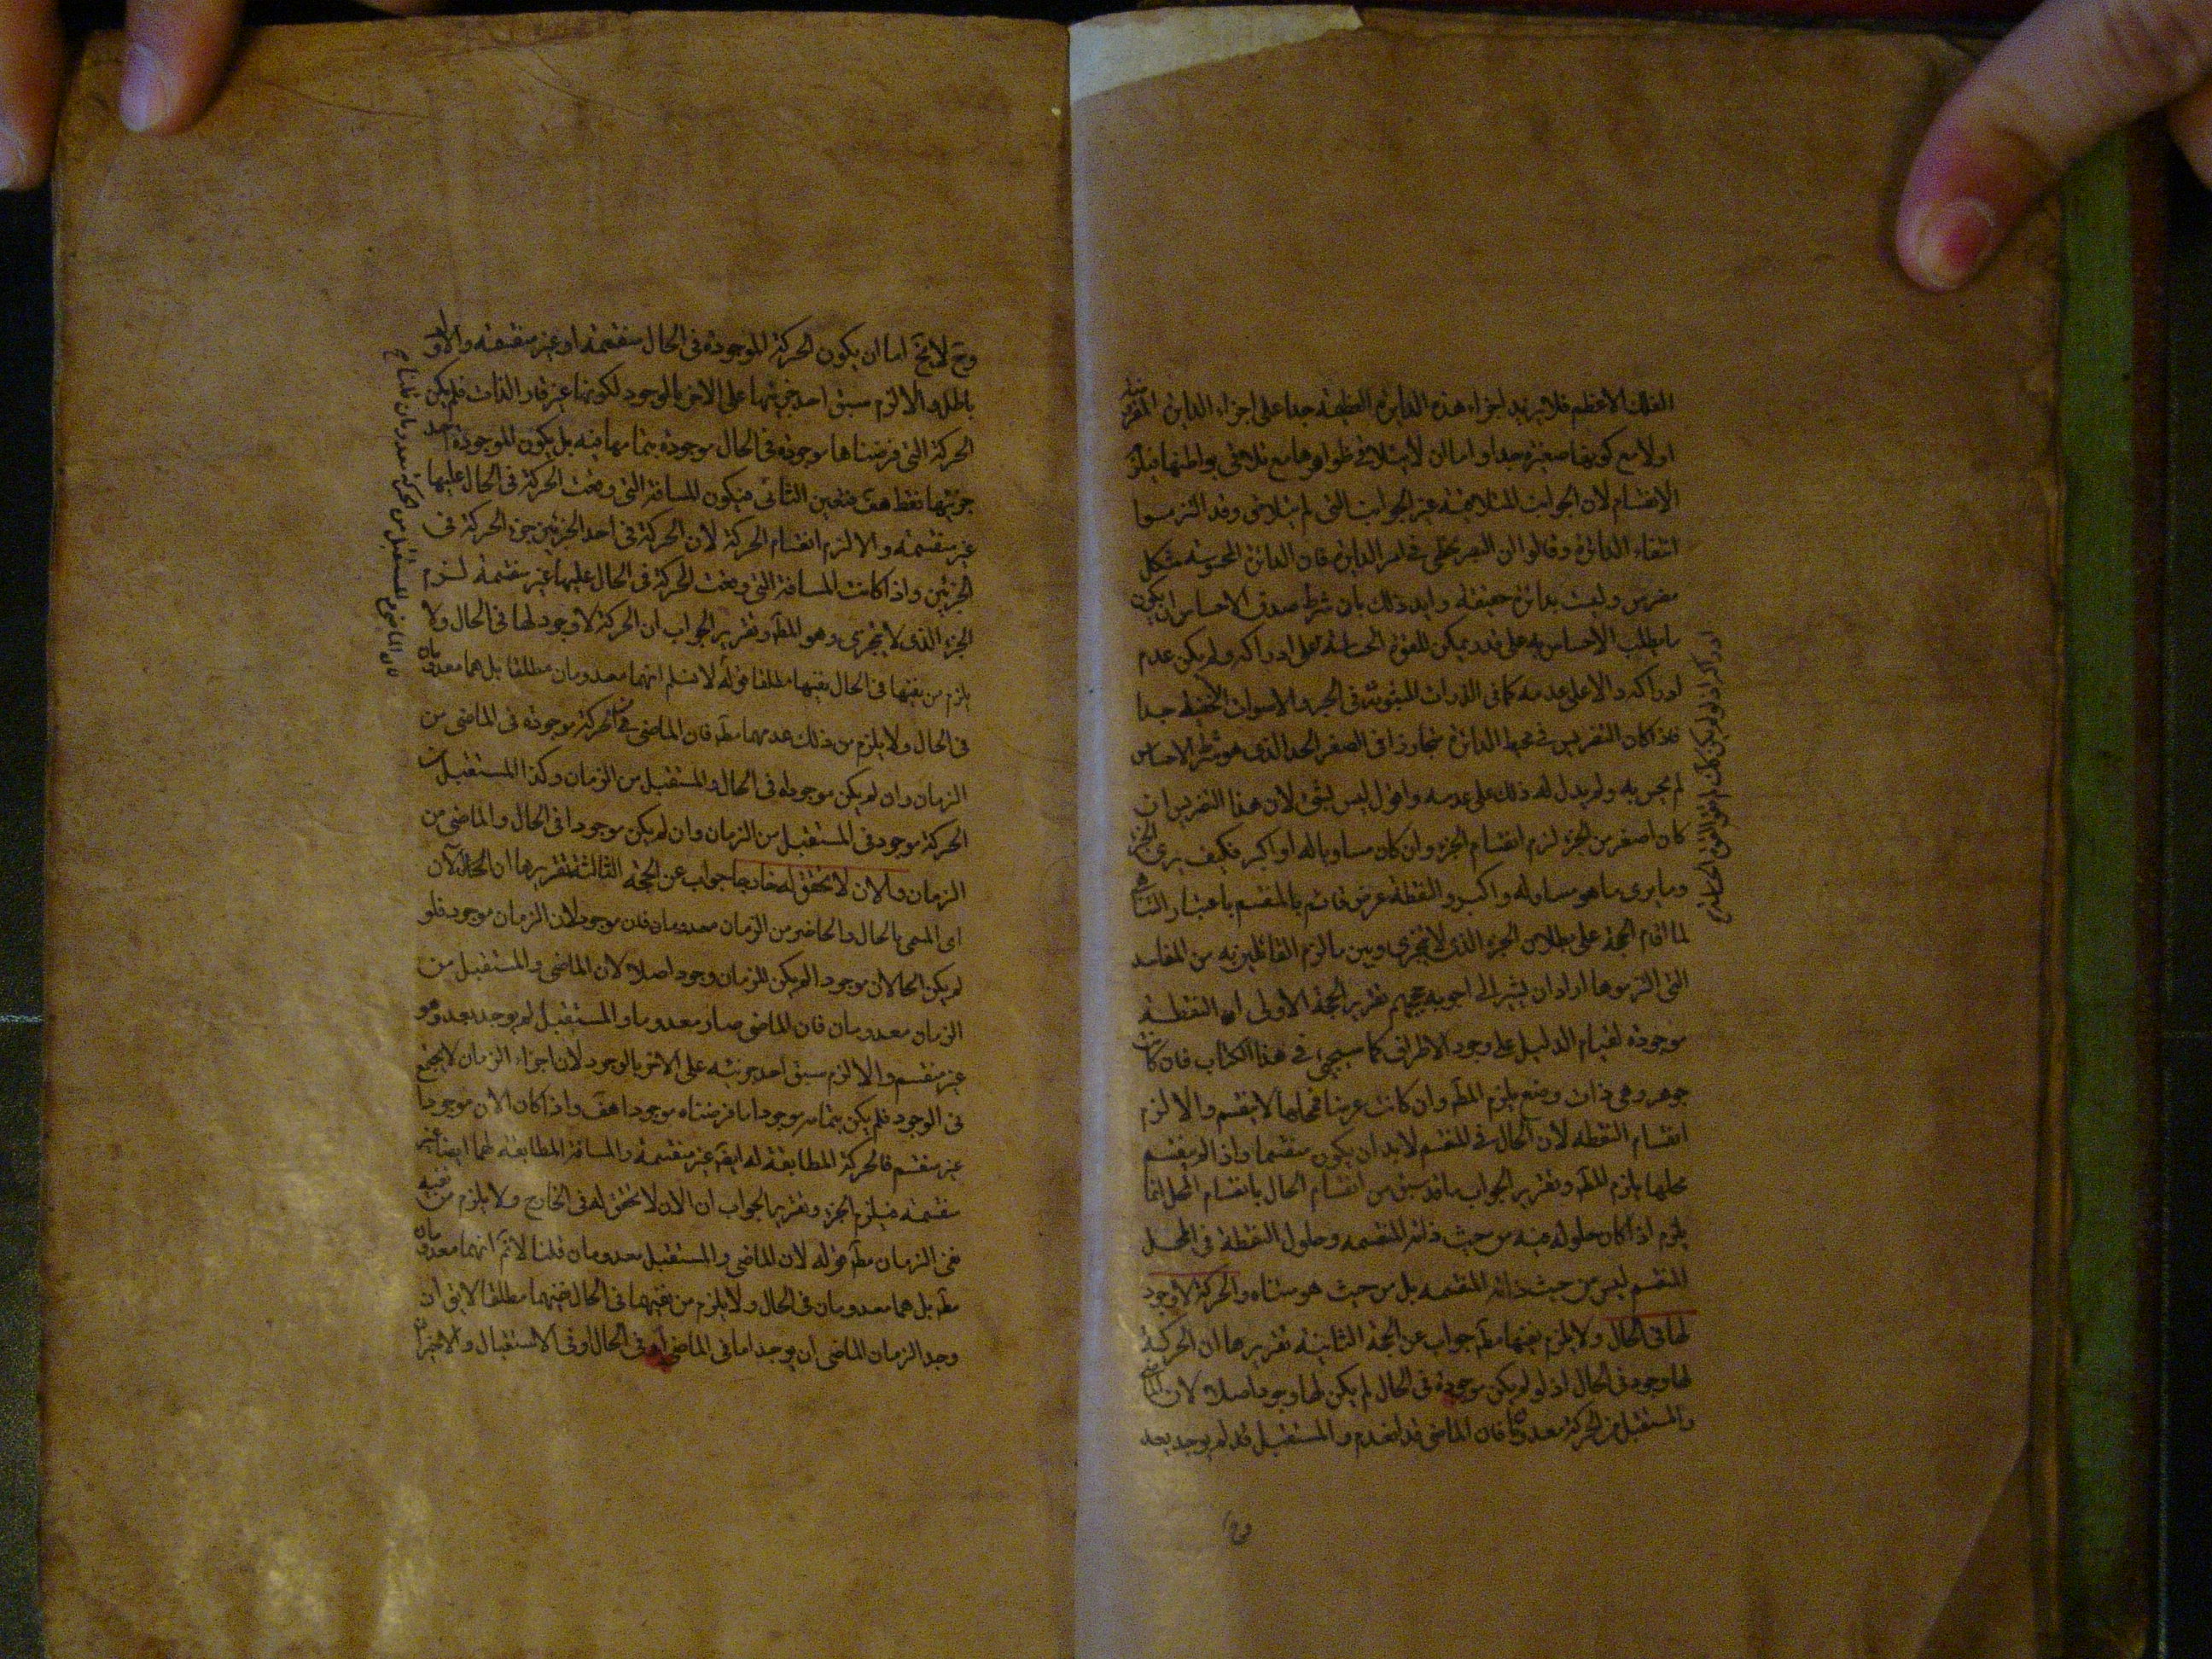 الفلك الاعظم فلا يزيد اجزاء هذه الدايرة العظيمة جدا على اجزاء الدايرة المفروضة
اولا مع كونها صغيرة جدا واما ان لا يتلاقى ظواهرها مع تلاقى بواطنها فيلزم
الانقسام لان الجوانب المتلاقية غير الجوانب التى لم يتلاقى وقد التزموا
انتفاء الدائرة وقالوا ان البصر يخطى فى امر الدايرة فان الدائرة المحسوسة شكل
مضرس وليت بدائرة حقيقة وايد ذلك بان شرط صدق الاحساس ان يكون
ما يطلب الاحساس به على قدر يمكن للقوة الحساسة على ادراكه ولم يكن عدم
ادراكه دالا على عدمه كما فى الذرات المبثوثة فى الجو والاصوات الخفية جدا
فاذا كان التضريس فى محيط الدائرة متجاوزا فى الصغر الحد الذى هو شرط الاحساس
لم يحس به ولم يدل له ذلك على عدمه واقول ليس بشئ لان هذا التضريس ان
كان اصغر من الجزء لزم انقسام الجزء وان كان مساويا له او اكبر فكيف يرى الجزء
وما يرى ما هو مساو له واكبر والنقطة عرض قائم بالمنقسم باعتبار التناهى
لما اقام الحجة على بطلان الجزء الذى لا يتجزى وبين ما لزم القائلين به من المفاسد
التى التزموها اراد ان يشير الى اجوبة حججهم تقرير الحجة الاولى ان النقطة
موجودة لقيام الدليل على وجود الاطراف كما سيجئ فى هذا الكتاب فان كانت
جوهر وهى ذات وضع يلزم المط وان كانت عرضا فمحلها لا ينقسم والا لزم
انقسام النقطة لان الحال فى المنقسم لابد ان يكون منقسما واذا لم ينقسم
محلها يلزم المط وتقرير الجواب ما قد سبق من انقسام الحال بانقسام المحل انما
يلزم اذا كان حلوله فيه من حيث ذاته المنقسمه وحلول النقطة فى المحل
المنقسم ليس من حيث ذاته المنقسمه بل من حيث هو متناه والحركة لا وجود
لها فى الحال ولا يلزم نفيها مط جواب عن الحجة الثانية تقريرها ان الحركة
لها وجود فى الحال اذ لو لم يكن موجودة فى الحال لم يكن لها وجود اصلا لان الماضى
والمستقبل من الحركة معدومان فان الماضى قد انعدم والمستقبل قد لم يوجد بعد
وح لا يخ اما ان يكون الحركة الموجودة فى الحال منقسمة او غير منقسمة والاول
باطل والا لزم سبق احد جزئيها على الاخر بالوجود لكونها غير قار الذات فلم يكن
الحركة التى فرضناها موجودة فى الحال موجودة بتمامها فيه بل يكون الموجودة احد
جزئيها فقط هف فتعين الثانى فيكون المسافة التى وقعت الحركة فى الحال عليها
غير منقسمة والا لزم انقسام الحركة لان الحركة فى احد الجزئين جزء الحركة فى
الجزئين واذا كانت المسافة التى وقعت الحركة فى الحال عليها غير منقسمة لزم
الجزء الذى لا يتجزى وهو المط وتقرير الجواب ان الحركة لا وجود لها فى الحال ولا
يلزم من نفيها فى الحال نفيها مطلقا قوله لا نسلم انهما معدومان مطلقا بل هما معدومان
فى الحال ولا يلزم من ذلك عدمهما مط فان الماضى من الحركة موجودة فى الماضى من
الزمان وان لم يكن موجودة فى الحال والمستقبل من الزمان وكذا المستقبل من
الحركة موجود فى المستقبل من الزمان وان لم يكن موجودا فى الحال والماضى من
الزمان والان لا تحقق له خارجا جواب عن الحجة الثالثة تقريرها ان الحال الآن
اى المسمى بالحال والحاضر من الزمان موجود لان الزمان موجود فلو
لم يكن الحال الان موجودا لم يكن للزمان وجود اصلا لان الماضى والمستقبل من
الزمان معدومان فان الماضى صار معدوما والمستقبل لم يوجد بعد وهو
غير منقسم والا لزم سبق احد جزئيه على الاخر بالوجود لان اجزاء الزمان لا يجتمع
فى الوجود فلم يكن بتمامه موجودا ما فرضناه موجودا هف واذا كان الان موجودا
غير منقسم فالحركة المطابقة له ايضا غير منقسمة والمسافة المطابقة لها ايضا غير
منقسمة فيلزم الجزء وتقرير الجواب ان الان لا تحقق له فى الخارج ولا يلزم من نفيه
نفى الزمان مط قوله لان الماضى والمستقبل معدومان قلنا لا نم انهما معدومان
مط بل هما معدومان فى الحال ولا يلزم من نفيهما فى الحال نفيهما مطلقا لا يق ان
وجد الزمان الماضى ان يوجد اما فى الماضى او فى الحال او فى الاستقبال والاخيران